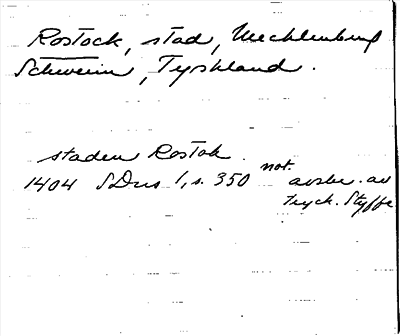 Rostock, stad, Mecklenburg
Schwerin, Tyskland.
staden Rostok.
1404 SDns 1, s. 350 not. avskr. av
tryck. Styffe